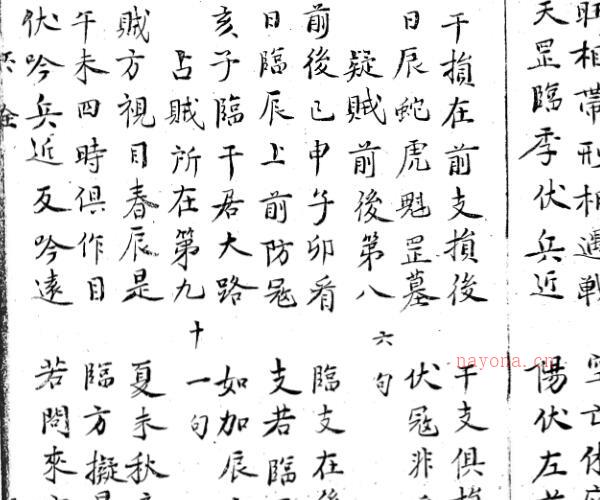 旺相帶刑相遇戰 空亡休
天罡臨季伏兵近 陽伏左
干損在前支損後 干支俱損
日辰蛇虎魁罡墓 伏冦非
疑賊前後第八 六句
前後已申午卯看 臨支在後
日臨辰上前防冦 支若臨
亥子臨干君大路 如加辰
占賊所在第九 十一句
賊方視目春辰是 夏未秋
午未四時俱作目 臨方擬是
伏吟兵近反吟遠 若問來
nayona.cn